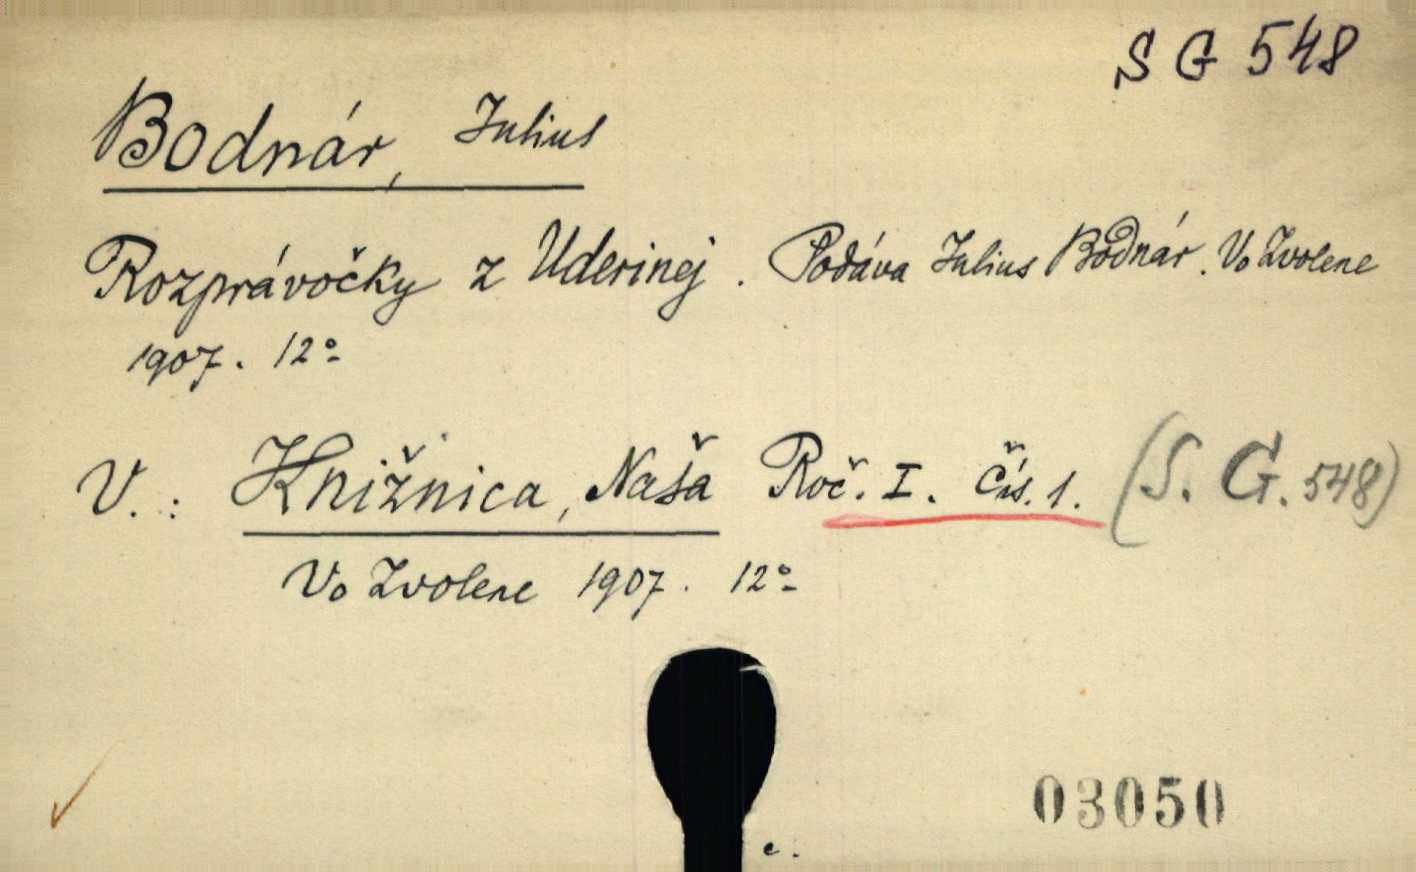 S G 548
Bodnár, Julius
Rozprávočky z Uderinej. Podáva Julius Bodnár. Vo Zvolene
1907. 12º
V.: Knižnica, Naša Roč. I. Čís. 1. (S. G. 548)
Vo Zvolene 1907. 12º
03050
c.